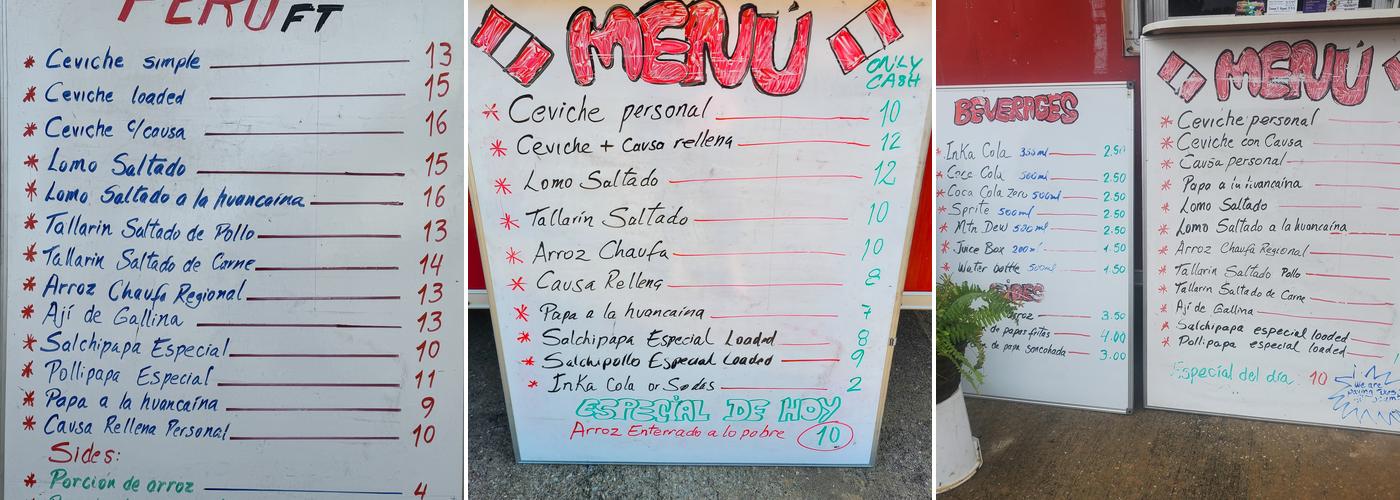 PERU FT
* Ceviche simple 13
* Ceviche loaded 15
* Ceviche c/causa 16
* Lomo Saltado 15
* Lomo Saltado a la huancaína 16
* Tallarín Saltado de Pollo 13
* Tallarin Saltado de Carne 14
* Arroz Chaufa Regional 13
* Ají de Gallina 13
* Salchipapa Especial 10
* Pollipapa Especial 11
* Papa a la huancaína 9
* Causa Rellena Personal 10
Sides:
* Porcion de arroz 4
MENÚ
ONLY CASH
* Ceviche personal 10
* Ceviche + Causa rellena 12
* Lomo Saltado 12
* Tallarín Saltado 10
* Arroz Chaufa 10
* Causa Rellena 8
* Papa a la huancaína 7
* Salchipapa Especial Loaded 8
* Salchipollo Especial Loaded 9
* InKa Cola or Sodas 2
ESPECIAL DE HOY
Arroz Enterrado a lo pobre 10
BEVERAGES
* InKa Cola 350ml 2.50
* Coca Cola 500ml 2.50
* Coca Cola Zero 500ml 2.50
* Sprite 500ml 2.50
* Mtn Dew 500ml 2.50
* Juice Box 200ml 1.50
* Water bottle 500ml 1.50
arroz 3.50
de papas fritas 4.00
de papa sancohada 3.00
MENÚ
* Ceviche personal
* Ceviche con Causa
* Causa personal
* Papa a la huancaína
* Lomo Saltado
* Lomo Saltado a la huancaína
* Arroz Chaufa Regional
* Tallarin Saltado Pollo
* Tallarin Saltado de Carne
* Ají de Gallina
* Salchipapa especial loaded
* Pollipapa especial loaded
Especial del día 10
We are